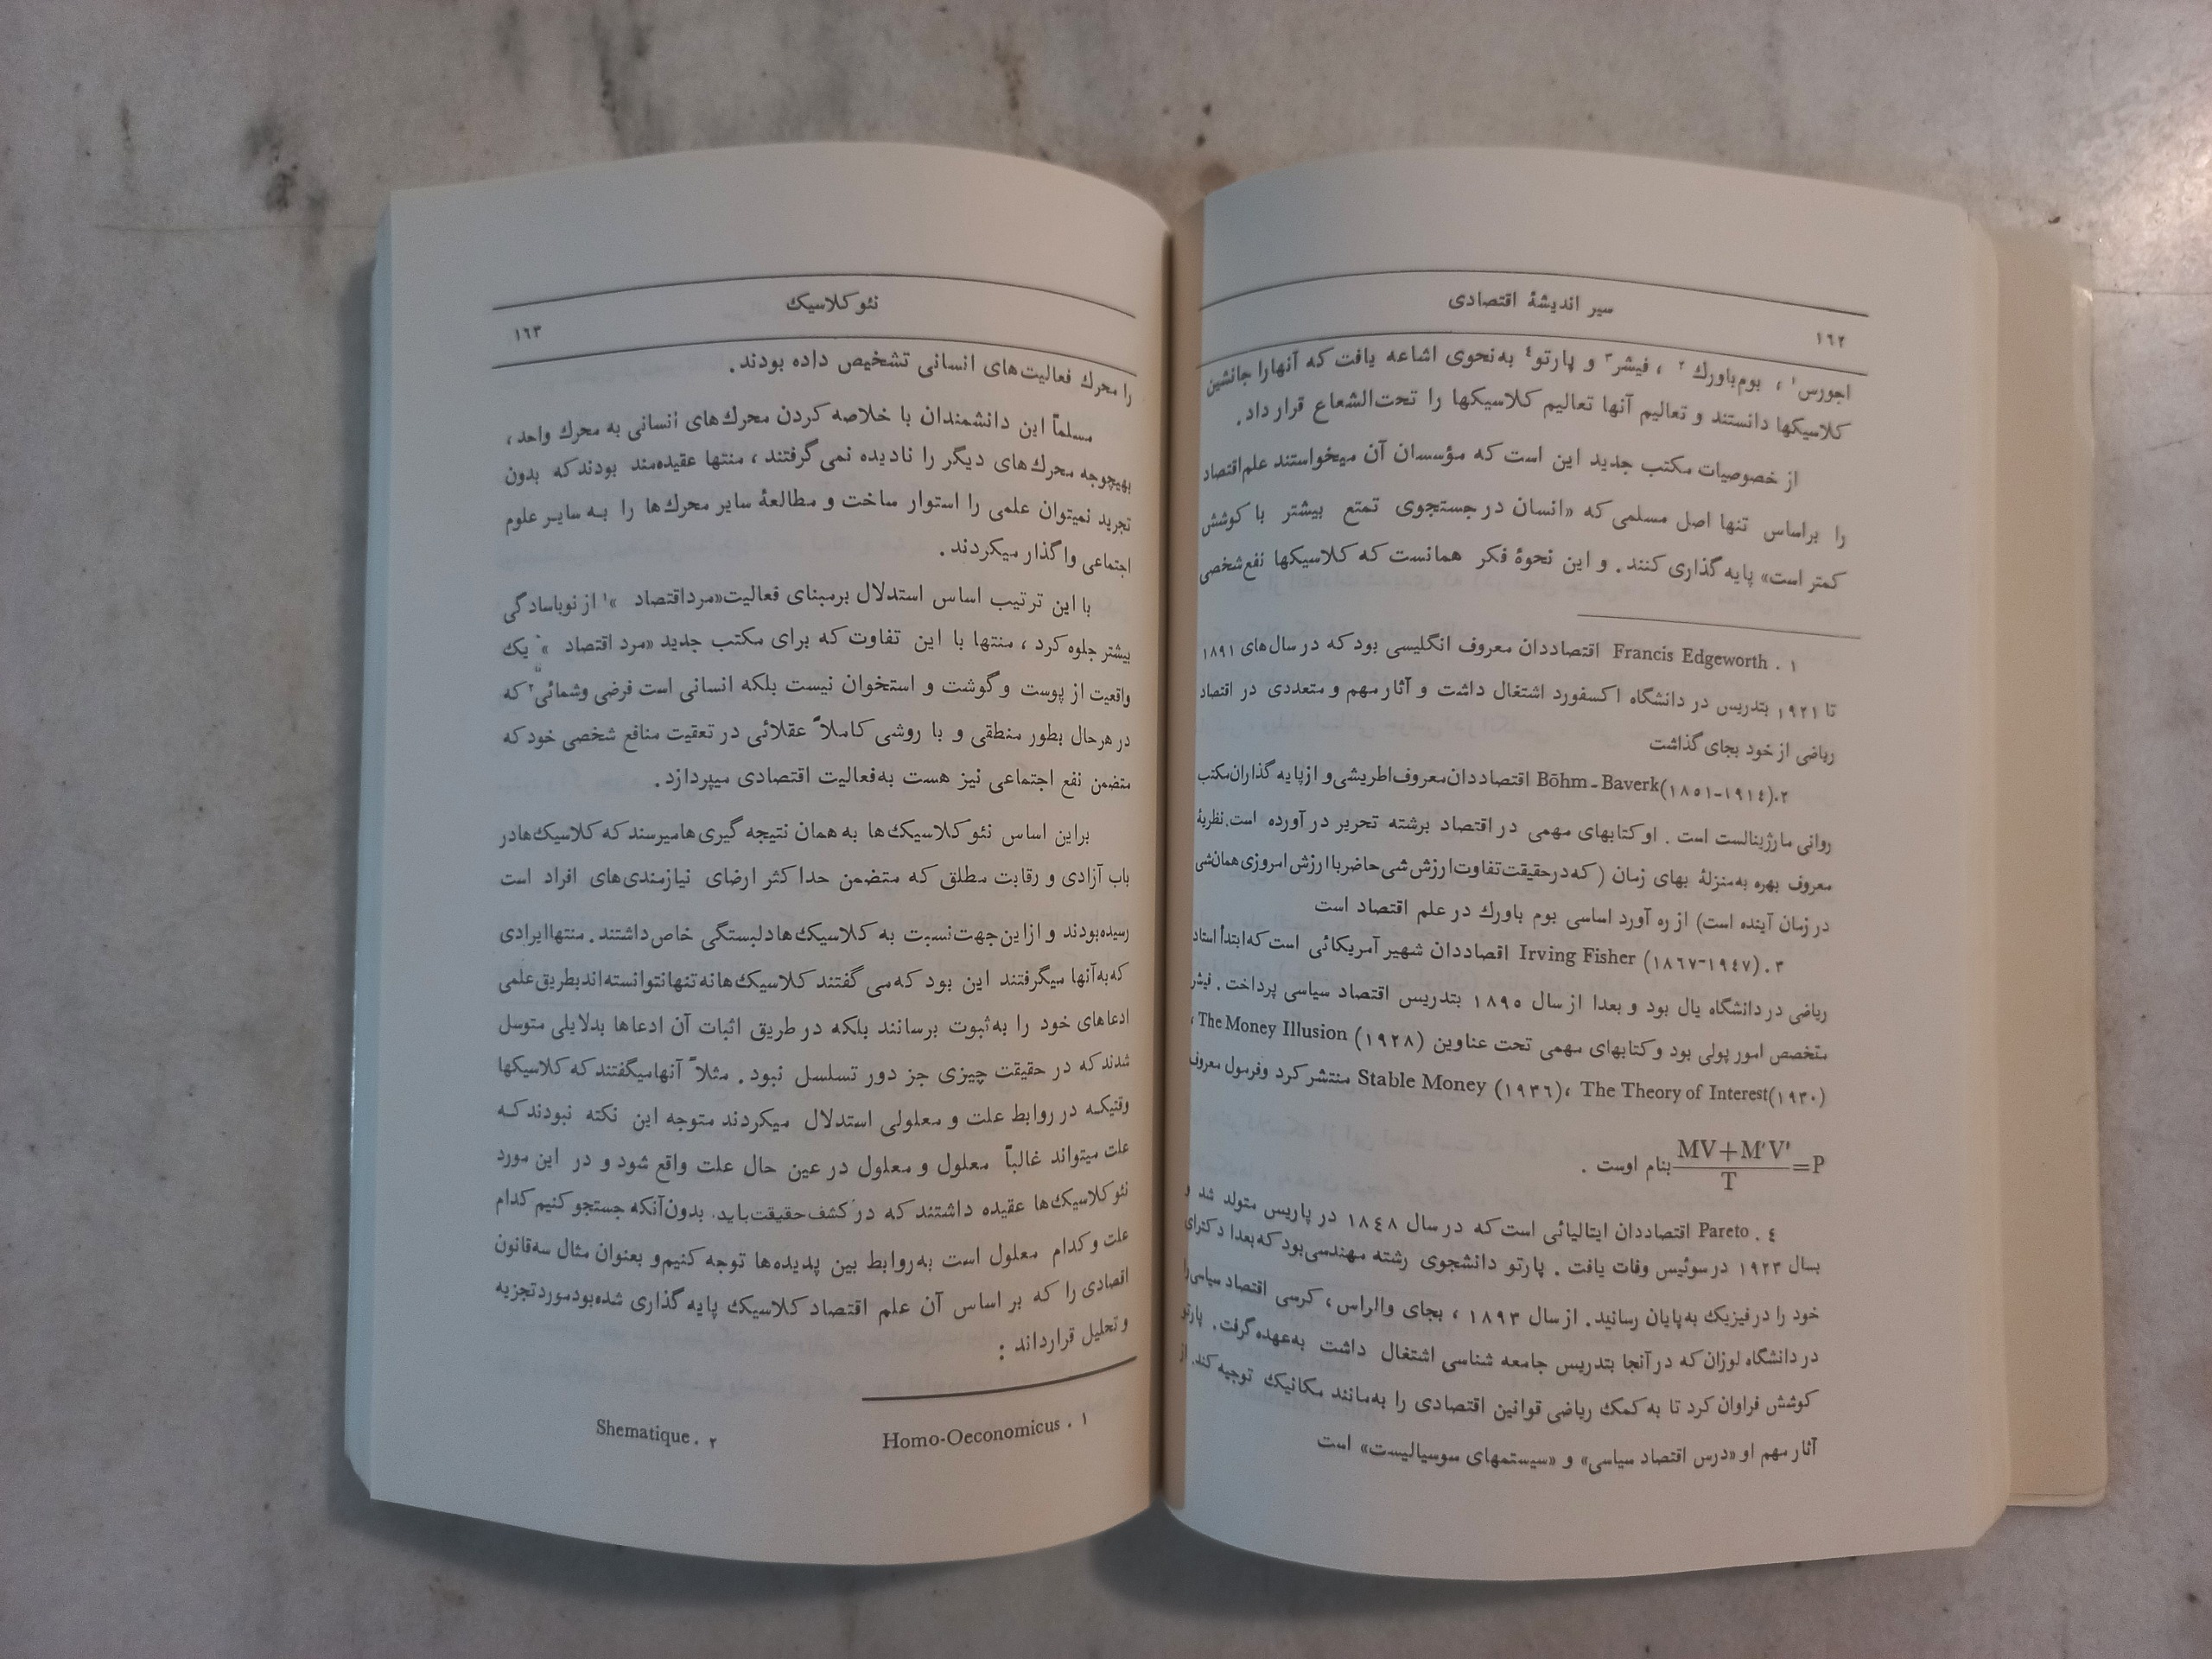 سیر اندیشهٔ اقتصادی
١٦٢
اجورس١ ، بوم‌باورك ٢ ، فیشر٣ و پارتو٤ به‌نحوی اشاعه یافت که آنهارا جانشین
کلاسیکها دانستند و تعالیم آنها تعالیم کلاسیکها را تحت‌الشعاع قرار داد.
از خصوصیات مکتب جدید این است که مؤسسان آن میخواستند علم‌اقتصاد
را براساس تنها اصل مسلمی که «انسان در جستجوی تمتع بیشتر با کوشش
کمتر است» پایه‌گذاری کنند. و این نحوهٔ فکر همانست که کلاسیکها نفع‌شخصی
١ . Francis Edgeworth اقتصاددان معروف انگلیسی بود که در سال‌های ١٨٩١
تا ١٩٢١ بتدریس در دانشگاه اکسفورد اشتغال داشت و آثار مهم و متعددی در اقتصاد
ریاضی از خود بجای گذاشت
٢.(١٨٥١-١٩١٤)Böhm-Baverk اقتصاددان‌معروف‌اطریشی‌و ازپایه‌گذاران‌مکتب
روانی مارژینالست است . او کتابهای مهمی در اقتصاد برشته تحریر در آورده است. نظریهٔ
معروف بهره به‌منزلهٔ بهای زمان ( که‌درحقیقت‌تفاوت‌ارزش‌شی‌حاضر با ارزش‌امروزی‌همان‌شی
در زمان آینده است) از ره آورد اساسی بوم باورك در علم اقتصاد است
٣ . (١٨٦٧-١٩٤٧) Irving Fisher اقصاددان شهیر آمریکائی است که‌ابتدأ استاد
ریاضی در دانشگاه یال بود و بعدا از سال ١٨٩٥ بتدریس اقتصاد سیاسی پرداخت . فیشر
متخصص امور پولی بود و کتابهای مهمی تحت عناوین The Money Illusion (١٩٢٨) ،
Stable Money (١٩٣٦)، The Theory of Interest(١٩٣٠) منتشر کرد وفرمول معروف
P=\frac{MV+M'V'}{T} بنام اوست .
٤ . Pareto اقتصاددان ایتالیائی است که در سال ١٨٤٨ در پاریس متولد شد و
بسال ١٩٢٣ در سوئیس وفات یافت . پارتو دانشجوی رشته مهندسی‌بود که‌بعدا دکترای
خود را در فیزیك به‌پایان رسانید. از سال ١٨٩٣ ، بجای والراس، کرسی اقتصاد سیاسی‌را
در دانشگاه لوزان که در آنجا بتدریس جامعه شناسی اشتغال داشت به‌عهده‌گرفت. پارتو
کوشش فراوان کرد تا به کمك ریاضی قوانین اقتصادی را به‌مانند مکانیك توجیه کند. از
آثار مهم او «درس اقتصاد سیاسی» و «سیستمهای سوسیالیست» است
نئوکلاسیك
١٦٣
را محرك فعالیت‌های انسانی تشخیص داده بودند.
مسلماً این دانشمندان با خلاصه کردن محرك‌های انسانی به محرك واحد،
بهیچوجه محرك‌های دیگر را نادیده نمی‌گرفتند ، منتها عقیده‌مند بودند که بدون
تجرید نمیتوان علمی را استوار ساخت و مطالعهٔ سایر محرك‌ها را به سایر علوم
اجتماعی واگذار میکردند .
با این ترتیب اساس استدلال برمبنای فعالیت«مرداقتصاد »١ از نوباسادگی
بیشتر جلوه کرد ، منتها با این تفاوت که برای مکتب جدید «مرد اقتصاد » یك
واقعیت از پوست و گوشت و استخوان نیست بلکه انسانی است فرضی وشمائی٢ که
در هرحال بطور منطقی و با روشی کاملاً عقلائی در تعقیت منافع شخصی خود که
متضمن نفع اجتماعی نیز هست به‌فعالیت اقتصادی میپردازد .
براین اساس نئوکلاسیك‌ها به همان نتیجه گیری‌هامیرسند که کلاسیك‌هادر
باب آزادی و رقابت مطلق که متضمن حداکثر ارضای نیازمندی‌های افراد است
رسیده‌بودند و ازاین‌جهت‌نسبت به کلاسیك‌هادلبستگی خاص‌داشتند. منتهاایرادی
که‌به‌آنها میگرفتند این بود که‌می گفتند کلاسیك‌هانه‌تنهانتوانسته‌اندبطریق‌علمی
ادعاهای خود را به‌ثبوت برسانند بلکه در طریق اثبات آن ادعاها بدلایلی متوسل
شدند که در حقیقت چیزی جز دور تسلسل نبود. مثلاً آنهامیگفتند که کلاسیکها
وقتیکه در روابط علت و معلولی استدلال میکردند متوجه این نکته نبودند که
علت میتواند غالباً معلول و معلول در عین حال علت واقع شود و در این مورد
نئوکلاسیك‌ها عقیده داشتند که در کشف‌حقیقت‌باید. بدون‌آنکه جستجو کنیم کدام
علت و کدام معلول است به‌روابط بین پدیده‌ها توجه کنیم‌و بعنوان مثال سه‌قانون
اقصادی را که بر اساس آن علم اقتصاد کلاسیك پایه گذاری شده‌بودمورد تجزیه
و تحلیل قرارداند :
١ . Homo-Oeconomicus
٢ . Shematique